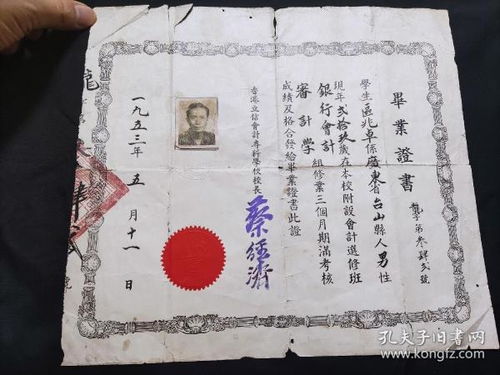 畢業證書
龍字第叁肆弍號
學生區兆卓係廣東省台山縣人男性
現年弍拾 歲在本校附設會計選修班
銀行會計
審計學
組修業三個月期滿考核
成績及格合發給畢業證書此證
香港立信會計專科學校校長
蔡經濟
一九五三年五月十一日
龍
號
孔夫子旧书网
www.kongfz.com